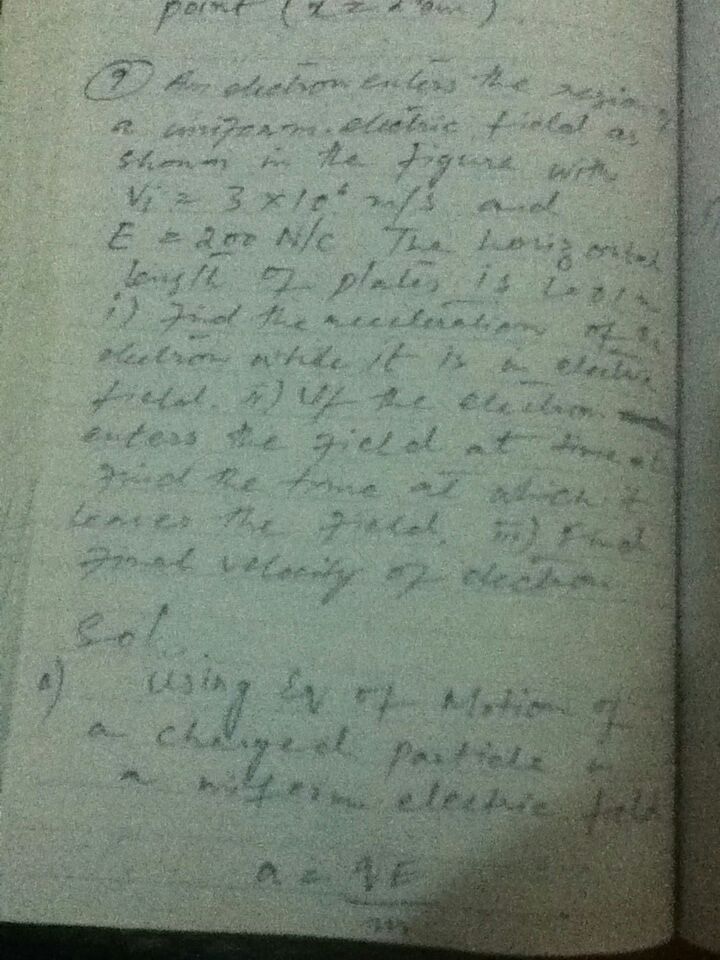 point (
9 An electron enters the region of
a uniform electric field as
shown in the figure with
Vi = 3 × 10⁶ m/s and
E = 200 N/C The horizontal
length of plates is
i) Find the acceleration of
electron while it is in electric
field. ii) If the electron
enters the field at time
Find the time at which it
leaves the field. iii) Find
Final velocity of electron
Sol.
a) Using Eq of Motion of
a charged particle in
a uniform electric field
a = qE
m